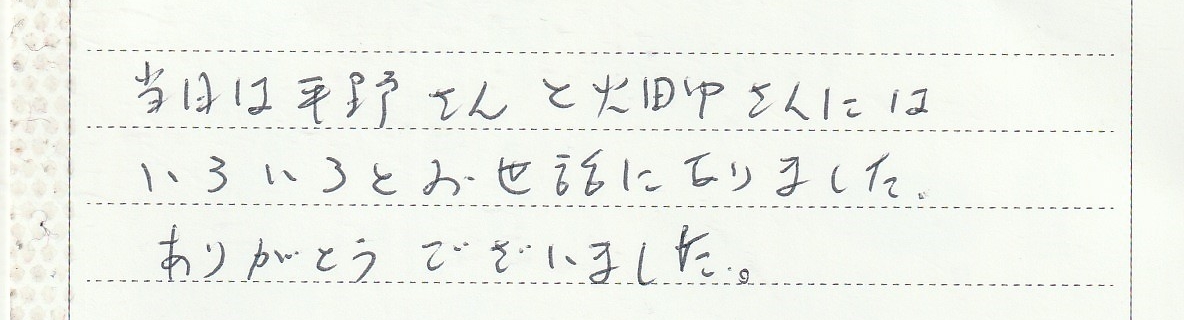 当日は平野さんと畑中さんには
いろいろとお世話になりました。
ありがとうございました。